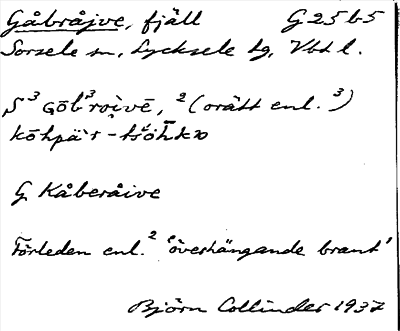 Gåbråjve, fjäll G 25 b 5
Sorsele sn, Lycksele lg, Vbt l.
S ³ Gōb³roi̯vē, ² (orätt enl. ³)
kōhpä̀r -
G Kåberåive
Förleden enl. ² 'överhängande brant'
Björn Collinder 1937